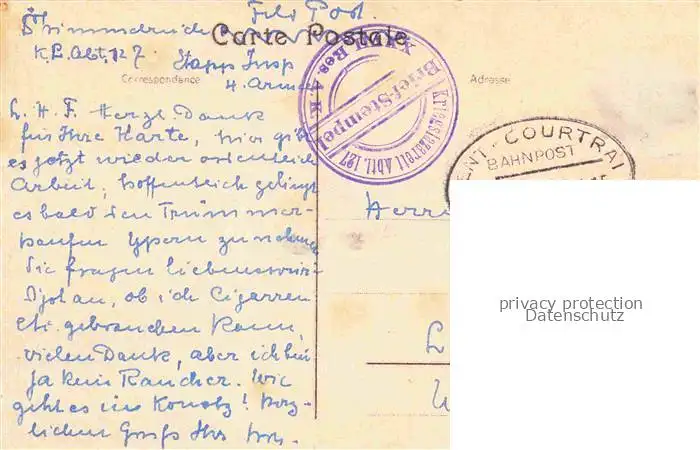 Feld Post.
Carte Postale
K.L. Abt. 127
Etapp Insp
4. Armee
Correspondance
Adresse
XXVII Res. A. K.
Brief-Stempel
Abtl. 127
GENT-COURTRAI
BAHNPOST
L. H. F. Herzl. Dank
für Ihre Karte, hier gibt
es jetzt wieder ordentlich
Arbeit, hoffentlich gelingt
es bald den Trümmer-
haufen Ypern zu nehmen
Sie fragen liebenswür-
an, ob ich Cigarren
etc. gebrauchen kann,
vielen Dank, aber ich bin
ja kein Raucher. Wie
geht es im Konstz! herz-
lichen Gruß Ihr
Herrn
L
privacy protection
Datenschutz